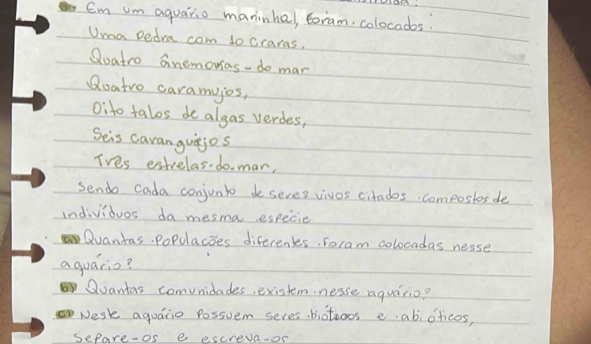 Em um aquário marinhal, foram colocados:
Uma pedra com 10 craras.
Quatro ânemonas-do mar
Quatro caramujos,
Oito talos de algas verdes,
Seis caranguejos
Três estrelas-do-mar,
sendo cada conjunto de seres vivos citados compostos de
indivíduos da mesma espécie
a) Quantas populações diferentes foram colocadas nesse
aquário?
b) Quantas comunidades existem nesse aquário?
c) Neste aquário possuem seres bióticos e abióticos,
separe-os e escreva-os